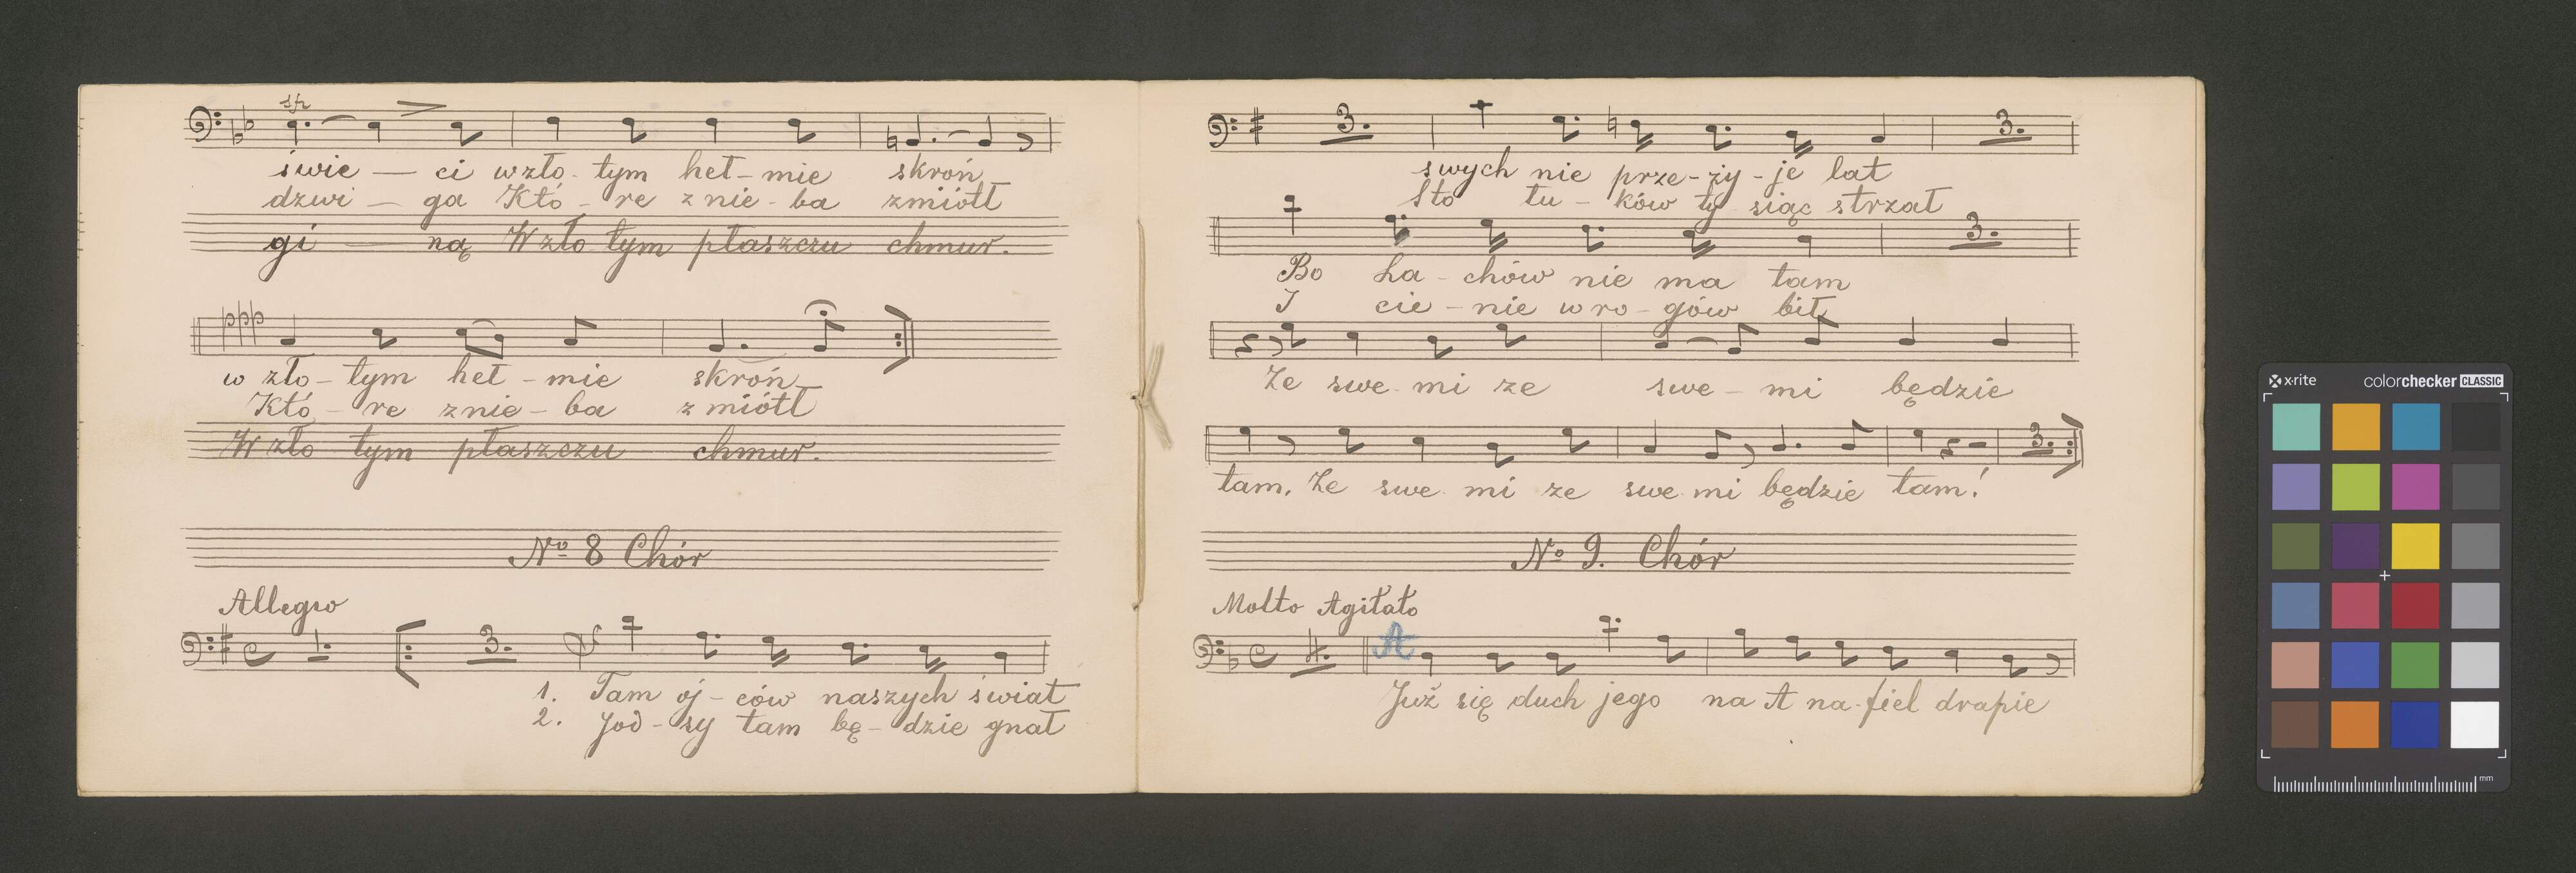 sfz
świe — ci w zło - tym heł - mie skroń
dzwi — ga Któ - re z nie - ba zmiótł
gi — ną W zło tym płaszczu chmur.
ppp
w zło - tym heł - mie skroń
Któ - re z nie - ba zmiótł
W zło tym płaszczu chmur.
No 8 Chór
Allegro
1. 3.
1. Tam oj - ców naszych świat
2. Jod - ły tam bę - dzie gnał
3. 3.
swych nie prze - ży - je lat
Sto łu - ków ty - siąc strzał
3.
Bo La - chów nie ma tam
I cie - nie wro - gów bił
Ze swe - mi ze swe - mi będzie
3.
tam. Ze swe - mi ze swe - mi będzie tam!
No 9. Chór
Molto Agitato
4. A
Już się duch jego na A na - fiel drapie
x-rite colorchecker CLASSIC
mm